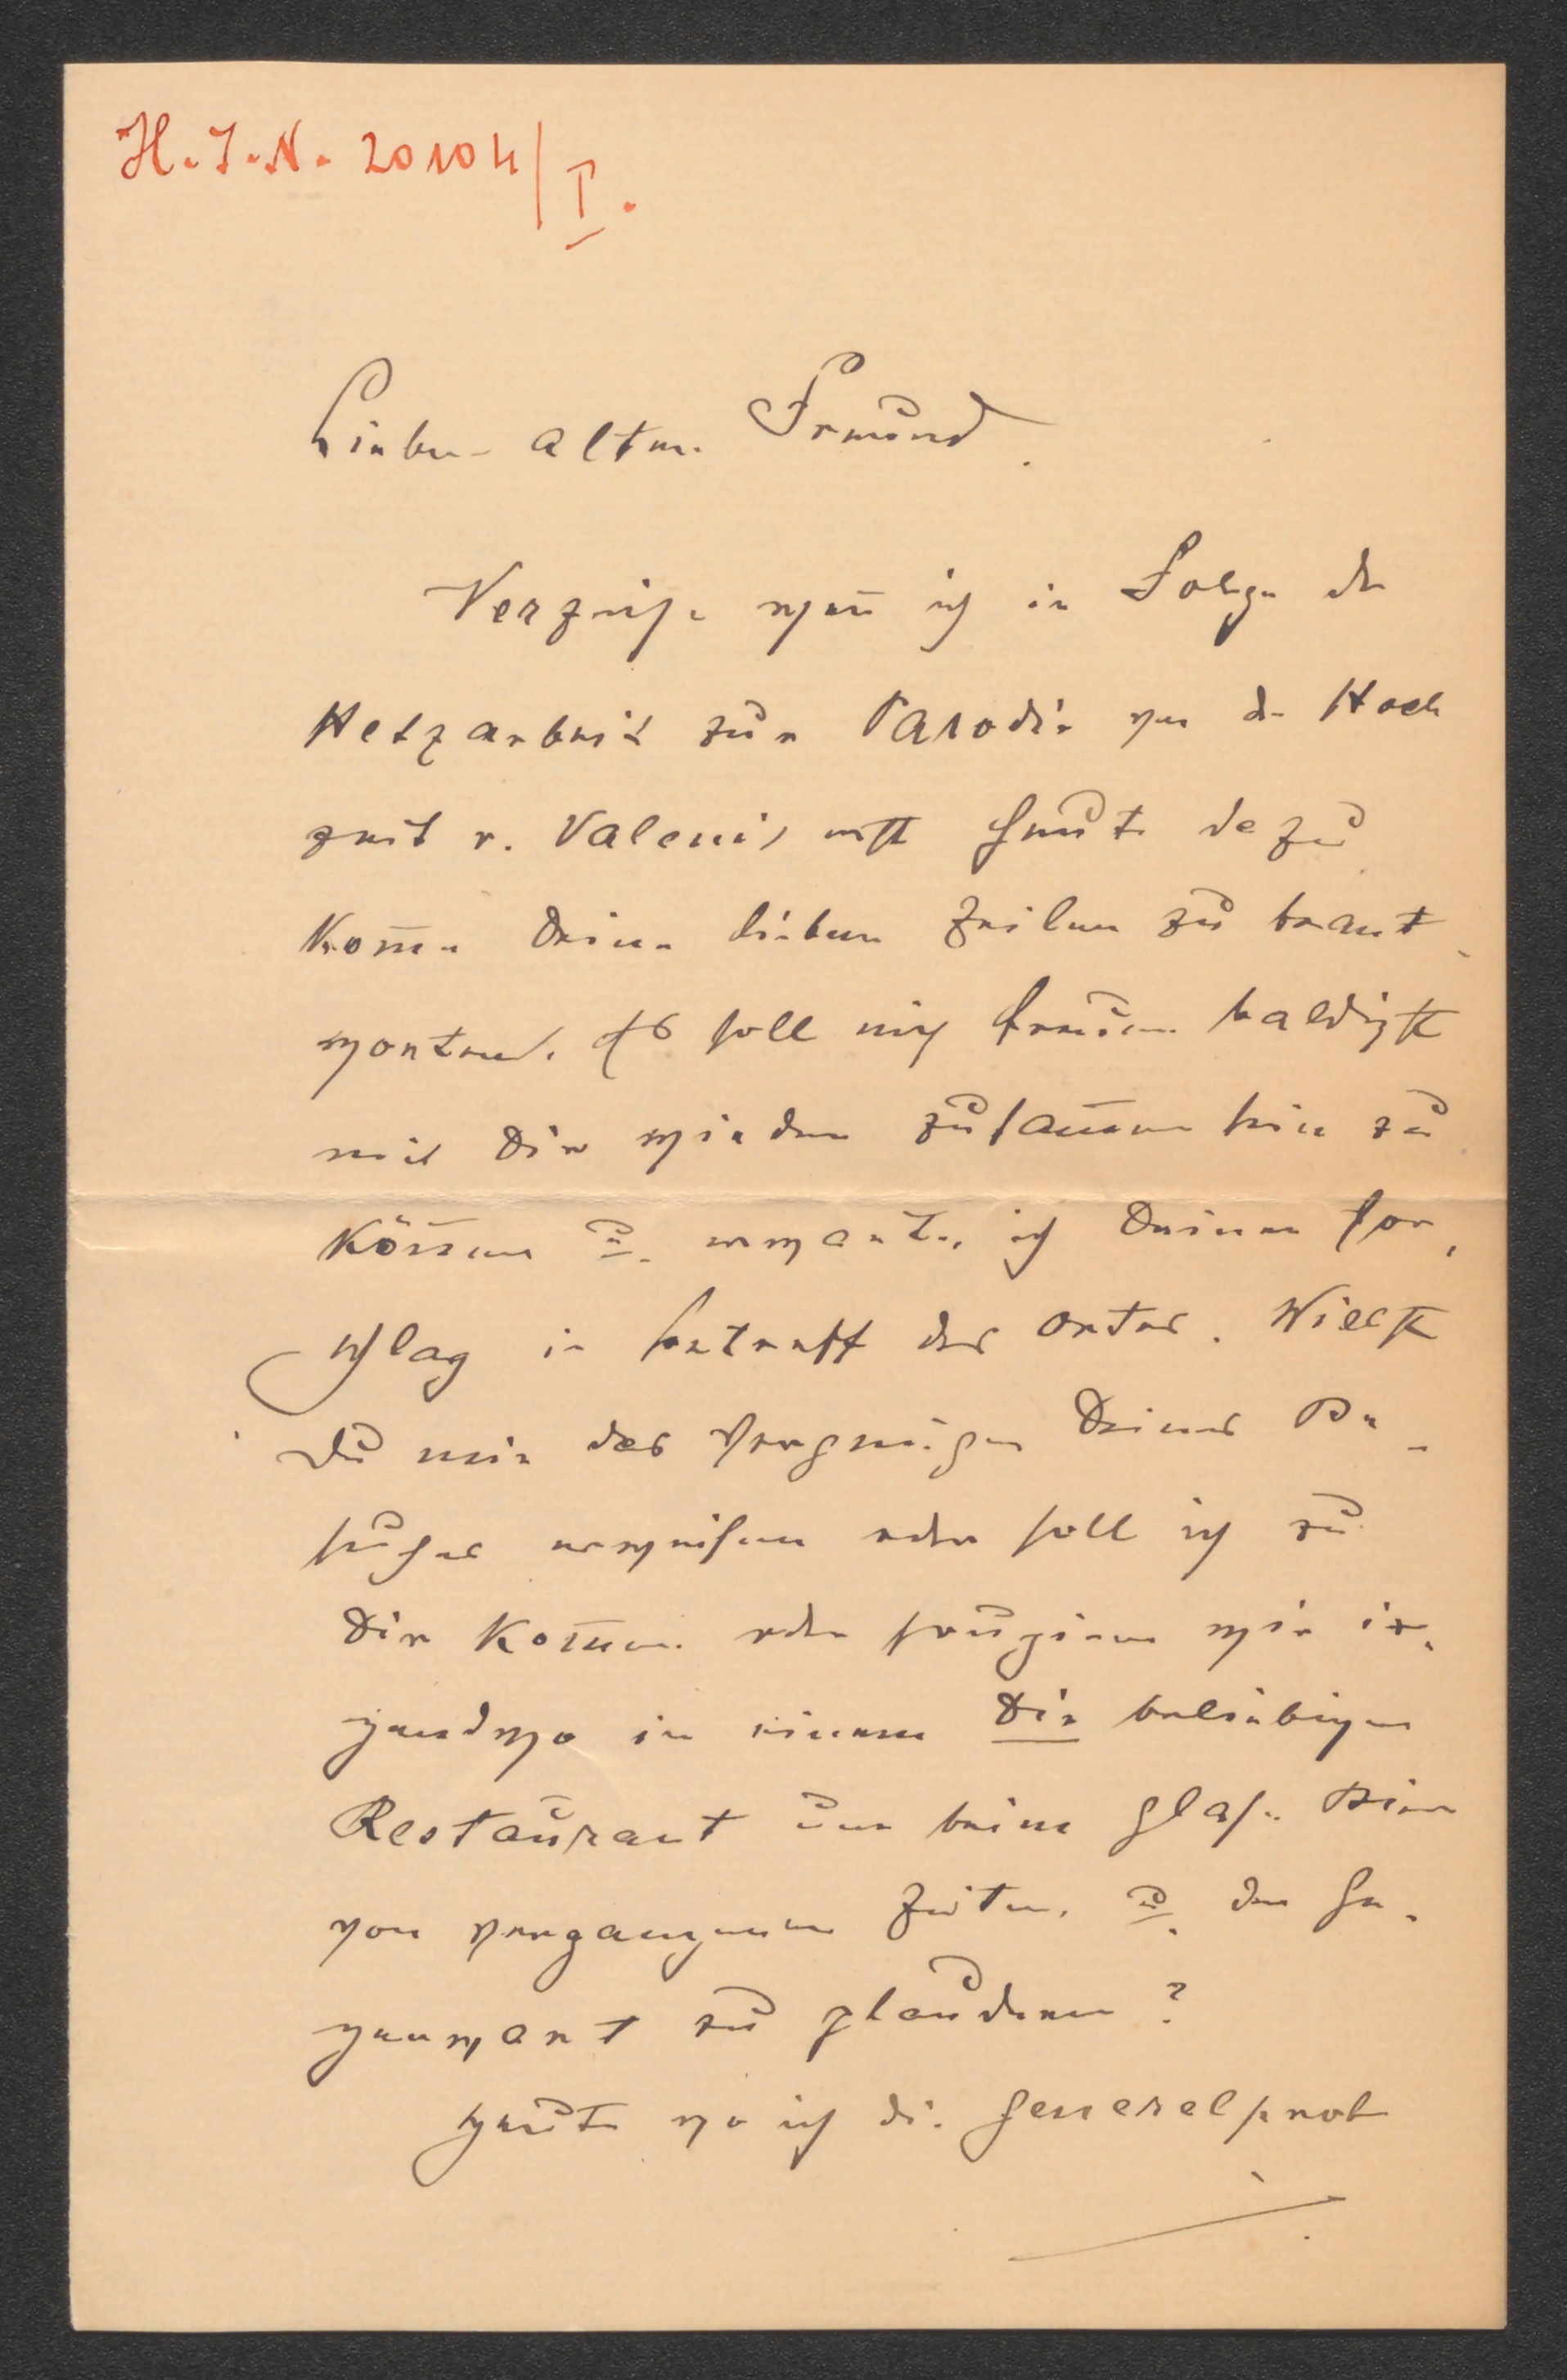 H.I.N. 20104/I.
Lieber alter Freund.
Verzeihe wenn ich in Folge der
Hetzarbeit zur Parodie von der Hoch
zeit v. Valeni, erst heute dazu
komme Deine lieben Zeilen zu beant-
worten. Es soll mich freuen baldigst
mit Dir wieder zusammen sein zu
können u. erwarte ich Deinen Vor-
schlag in betreff des Ortes. Willst
Du mir das Vergnügen Deines Be-
suches erweisen oder soll ich zu
Dir kommen oder soupieren wir ir-
gendwo in einem Dir beliebigen
Restaurant um beim Glase Bier
von vergangenen Zeiten u. der Ge-
genwart zu plaudern?
Heute wo ich die Generalprob